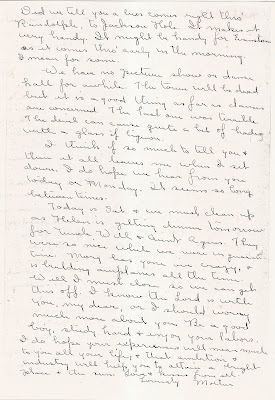 Did we tell you a bus comes right thro'
Randolph, to Jackson Hole. It makes it
very handy. It might be handy for Evanston
as it comes thro' early in the morning.
I mean for some.
We have no picture show or dance
hall for awhile. The town will be dead
but it is a good thing as far as dances
are concerned. The last one was terrible.
The devil can have quite a lot of
with a glass of liquor.
I think of so much to tell you &
then it all leaves me when I sit
down. I do hope we hear from you
today or Monday. It seems so long
between times.
Today is Sat. & we must clean up
as Helen is getting dinner tomorrow
for Uncle Will & Aunt Agnes. They
were so nice when we were in
time. Mary has you are crazy, &
is building airplanes all the time.
Well I must close so we can get
this off. I know the Lord is with
you, my dear, or I should worry
much more about you. Be a good
boy, study hard & enjoy your labors.
I do hope your experiences will mean much
to you all your life, & that ambition &
industry will help you to attain a bright
place in the sun. Lots of love from all
Lovingly Mother